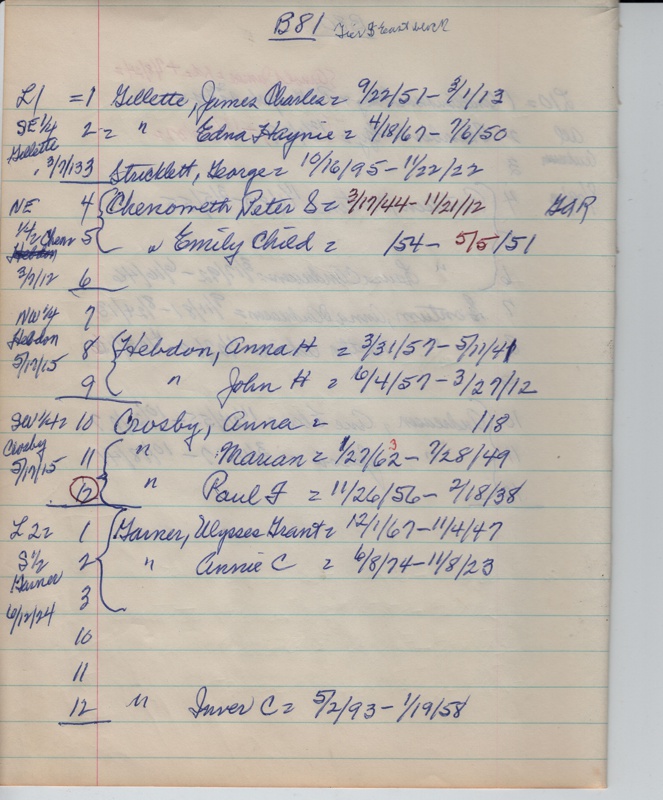 B81 Tier F East block
L1 = 1 Gillette, James Charles = 9/22/51 - 3/1/13
SE 1/4 2 = " Edna Haynie = 4/18/67 - 7/6/50
Gillette, 3/7/13 3 Stricklett, George = 10/16/95 - 11/22/22
NE 4 Chenoweth Peter S = 3/17/44 - 11/21/12 GAR
1/2 Chen 5 " Emily Child = /54 - 5/5/51
Hebdon
3/7/12 6
NW 1/4 7
Hebdon 8 Hebdon, Anna H = 3/31/57 - 5/11/41
5/17/15
9 " John H = 6/4/57 - 3/27/12
SW 1/4 = 10 Crosby, Anna = /18
Crosby 11 " Marian = 1/27/62 3 - 7/28/49
5/17/15
12 " Paul F = 11/26/56 - 2/18/38
L2 = 1 Garner, Ulysses Grant = 12/1/67 - 11/4/47
S 1/2 2 " Annie C = 6/8/74 - 11/8/23
Garner 3
6/12/24
10
11
12 " Inver C = 5/2/93 - 1/19/58